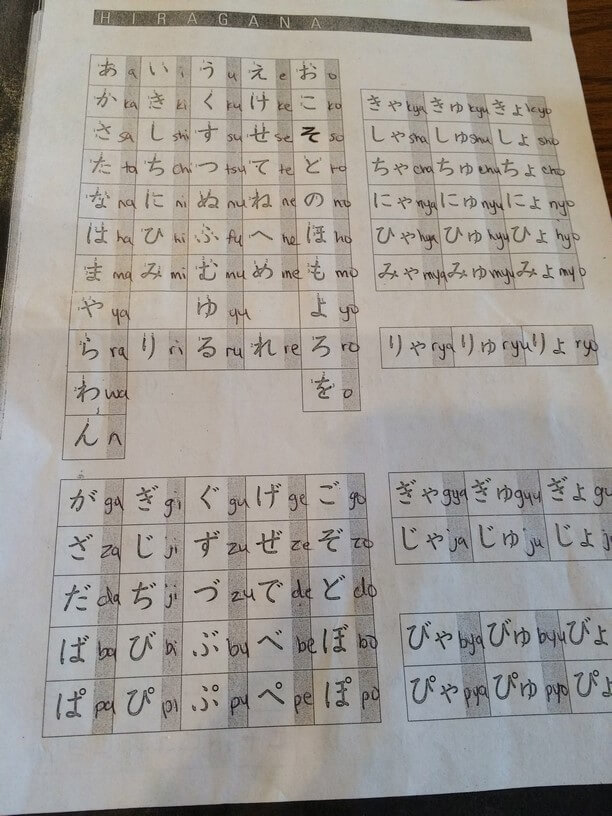 HIRAGANA
あ a い i う u え e お o
か ka き ki く ku け ke こ ko
さ sa し shi す su せ se そ so
た ta ち chi つ tsu て te と to
な na に ni ぬ nu ね ne の no
は ha ひ hi ふ fu へ he ほ ho
ま ma み mi む mu め me も mo
や ya ゆ yu よ yo
ら ra り ri る ru れ re ろ ro
わ wa を o
ん n
きゃ kya きゅ kyu きょ kyo
しゃ sha しゅ shu しょ sho
ちゃ cha ちゅ chu ちょ cho
にゃ nya にゅ nyu にょ nyo
ひゃ hya ひゅ hyu ひょ hyo
みゃ mya みゅ myu みょ myo
りゃ rya りゅ ryu りょ ryo
が ga ぎ gi ぐ gu げ ge ご go
ざ za じ ji ず zu ぜ ze ぞ zo
だ da ぢ ji づ zu で de ど do
ば ba び bi ぶ bu べ be ぼ bo
ぱ pa ぴ pi ぷ pu ぺ pe ぽ po
ぎゃ gya ぎゅ gyu ぎょ gy
じゃ ja じゅ ju じょ j
びゃ bya びゅ byu びょ
ぴゃ pya ぴゅ pyo ぴょ